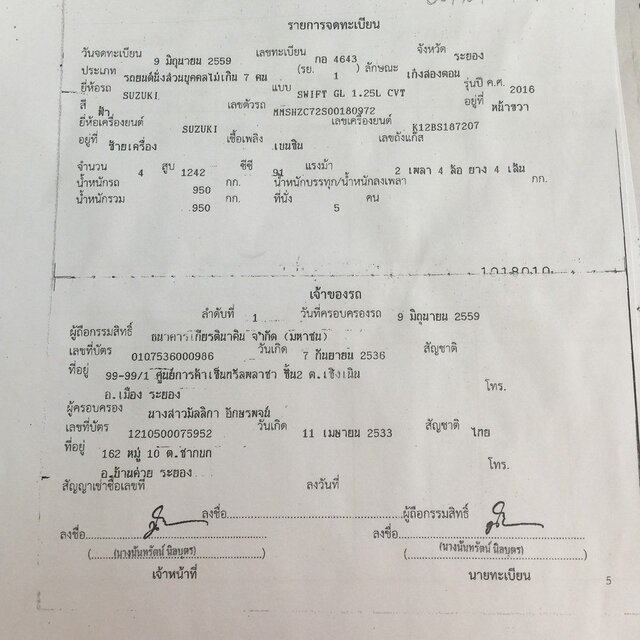 รายการจดทะเบียน
วันจดทะเบียน 9 มิถุนายน 2559 เลขทะเบียน กอ 4643 จังหวัด ระยอง
ประเภท รถยนต์นั่งส่วนบุคคลไม่เกิน 7 คน (รย. 1) ลักษณะ เก๋งสองตอน
ยี่ห้อรถ SUZUKI แบบ SWIFT GL 1.25L CVT รุ่นปี ค.ศ. 2016
สี ฟ้า เลขตัวรถ MMSHZC72S00180972 อยู่ที่ หน้าขวา
ยี่ห้อเครื่องยนต์ SUZUKI เลขเครื่องยนต์ K12BS187207
อยู่ที่ ซ้ายเครื่อง เชื้อเพลิง เบนซิน เลขถังแก๊ส
จำนวน 4 สูบ 1242 ซีซี 91 แรงม้า 2 เพลา 4 ล้อ ยาง 4 เส้น
น้ำหนักรถ 950 กก. น้ำหนักบรรทุก/น้ำหนักลงเพลา กก.
น้ำหนักรวม 950 กก. ที่นั่ง 5 คน
1018010
เจ้าของรถ
ลำดับที่ 1 วันที่ครอบครองรถ 9 มิถุนายน 2559
ผู้ถือกรรมสิทธิ์ ธนาคารเกียรตินาคิน จำกัด (มหาชน)
เลขที่บัตร 0107536000986 วันเกิด 7 กันยายน 2536 สัญชาติ
ที่อยู่ 99-99/1 ศูนย์การค้าเซ็นทรัลพลาซา ชั้น2 ต.เชิงเนิน
อ.เมือง ระยอง โทร.
ผู้ครอบครอง นางสาวมัลลิกา อักษรพจน์
เลขที่บัตร 1210500075952 วันเกิด 11 เมษายน 2533 สัญชาติ ไทย
ที่อยู่ 162 หมู่ 10 ต.ชากบก
อ.บ้านค่าย ระยอง โทร.
สัญญาเช่าซื้อเลขที่ ลงวันที่
ลงชื่อ ผู้ถือกรรมสิทธิ์
ลงชื่อ ลงชื่อ
(นางนันทรัตน์ นิลบุตร) (นางนันทรัตน์ นิลบุตร)
เจ้าหน้าที่ นายทะเบียน
5